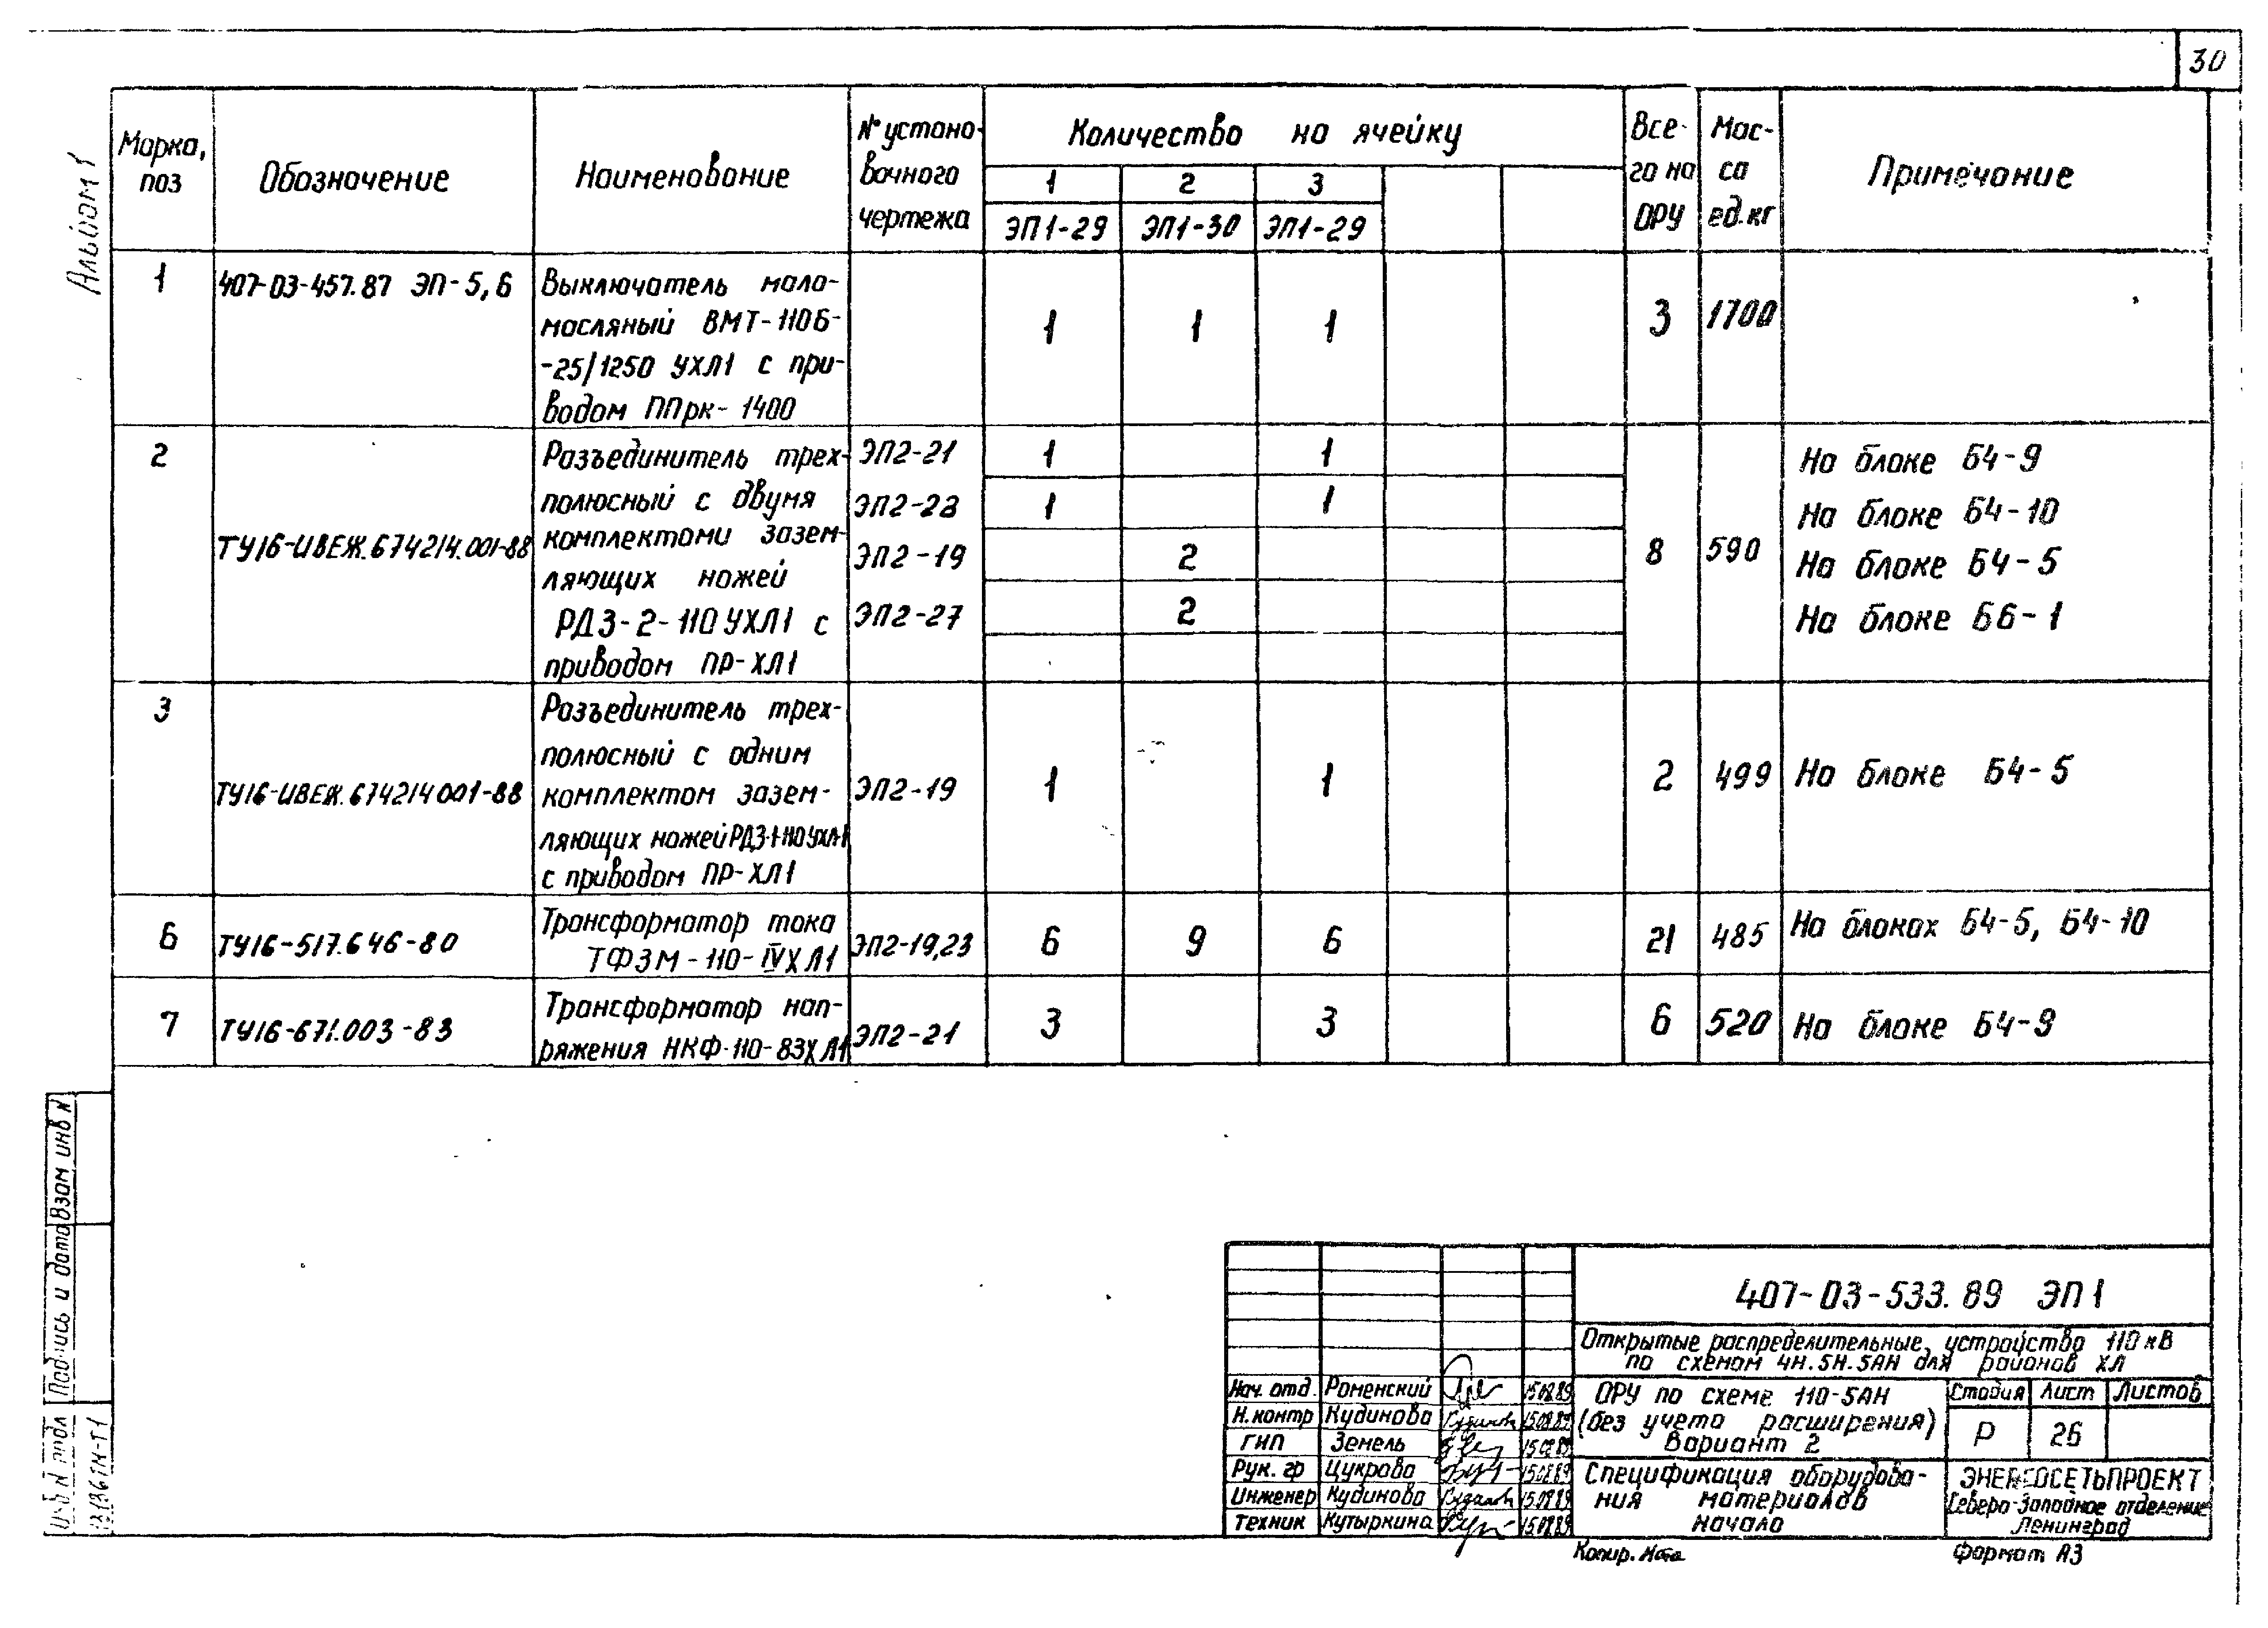 30
Альбом 1
Марка, поз
Обозначение
Наименование
№ устано-
вочного
чертежа
Количество на ячейку
1
2
3
ЭП1-29
ЭП1-30
ЭП1-29
Все-
го на
ОРУ
Мас-
са
ед.кг
Примечание
1
407-03-457.87 ЭП-5,6
Выключатель мало-
масляный ВМТ-110Б-
-25/1250 УХЛ1 с при-
водом ППрк-1400
1
1
1
3
1700
2
ТУ16-ИВЕЖ.674214.001-88
Разъединитель трех-
полюсный с двумя
комплектами зазем-
ляющих ножей
РДЗ-2-110 УХЛ1 с
приводом ПР-ХЛ1
ЭП2-21
1
1
ЭП2-23
1
1
ЭП2-19
2
ЭП2-27
2
8
590
На блоке Б4-9
На блоке Б4-10
На блоке Б4-5
На блоке Б6-1
3
ТУ16-ИВЕЖ.674214 001-88
Разъединитель трех-
полюсный с одним
комплектом зазем-
ляющих ножей РДЗ-1-110 УХЛ1
с приводом ПР-ХЛ1
ЭП2-19
1
1
2
499
На блоке Б4-5
6
ТУ16-517.646-80
Трансформатор тока
ТФЗМ-110-IVХЛ1
ЭП2-19,23
6
9
6
21
485
На блоках Б4-5, Б4-10
7
ТУ16-671.003-83
Трансформатор нап-
ряжения НКФ-110-83ХЛ1
ЭП2-21
3
3
6
520
На блоке Б4-9
Взам инв №
Подпись и дата
Инв № подл
407-03-533.89 ЭП1
Открытые распределительные устройства 110 кВ
по схемам 4Н.5Н.5АН для районов ХЛ
Нач. отд. Роменский 15.08.89
Н.контр Кудинова 15.08.89
ГИП Земель 15.08.89
Рук. гр Цукрова 15.08.89
Инженер Кудинова 15.08.89
Техник Кутыркина 15.08.89
ОРУ по схеме 110-5АН
(без учета расширения)
Вариант 2
Стадия Лист Листов
Р 26
Спецификация оборудова-
ния материалов
начало
ЭНЕРГОСЕТЬПРОЕКТ
Северо-Западное отделение
Ленинград
Копир.
Формат А3